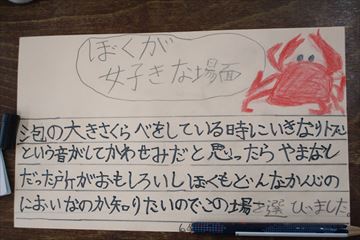 ぼくが
好きな場面
泡の大きさくらべをしている時にいきなりトブン
という音がしてかわせみだと思ったら やまなし
だった所がおもしろいしぼくもどんなかんじの
においなのか知りたいのでこの場を選びいました。